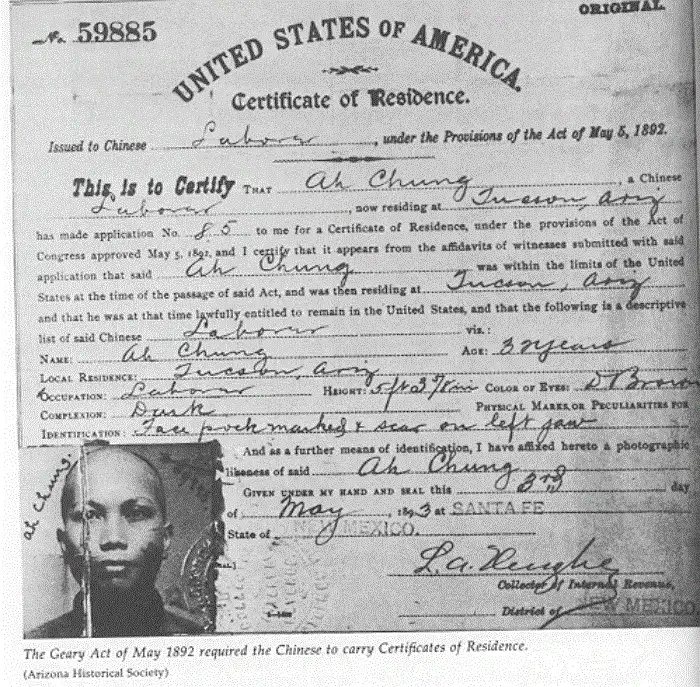 ORIGINAL.
No. 59885
UNITED STATES OF AMERICA.
Certificate of Residence.
Issued to Chinese Laborer, under the Provisions of the Act of May 5, 1892.
This is to Certify THAT Ah Chung, a Chinese
Laborer, now residing at Tucson, Ariz
has made application No. 85 to me for a Certificate of Residence, under the provisions of the Act of
Congress approved May 5, 1892, and I certify that it appears from the affidavits of witnesses submitted with said
application that said Ah Chung was within the limits of the United
States at the time of the passage of said Act, and was then residing at Tucson, Ariz
and that he was at that time lawfully entitled to remain in the United States, and that the following is a descriptive
list of said Chinese Laborer viz.:
NAME: Ah Chung AGE: 32 years
LOCAL RESIDENCE: Tucson, Ariz
OCCUPATION: Laborer HEIGHT: 5 ft 3 7/8 in COLOR OF EYES: D Brown
COMPLEXION: Dark PHYSICAL MARKS OR PECULIARITIES FOR
IDENTIFICATION: Face pock marked & scar on left jaw
And as a further means of identification, I have affixed hereto a photographic
likeness of said Ah Chung
GIVEN UNDER MY HAND AND SEAL this 3rd day
of May, 1893 at SANTA FE
State of NEW MEXICO.
Ah Chung.
L. A. Hughes
Collector of Internal Revenue,
District of NEW MEXICO
The Geary Act of May 1892 required the Chinese to carry Certificates of Residence.
(Arizona Historical Society)